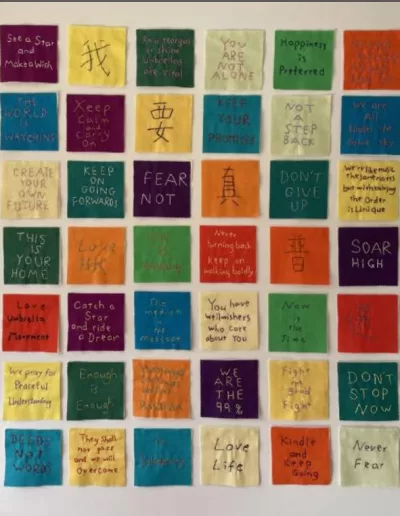 See a Star
and
Make a Wish
我
YOU
ARE
NOT
ALONE
Happiness
is
Preferred
THE
WORLD
IS
WATCHING
Keep
Calm
and
Carry
On
要
KEEP
YOUR
PROMISES
NOT
A
STEP
BACK
We are
All
Under the
Same Sky
CREATE
YOUR
OWN
FUTURE
KEEP
ON
GOING
FORWARD!
FEAR
NOT
真
DON'T
GIVE
UP
the Order
is Unique
THIS
IS
YOUR
HOME
Love
HK
Never
turning back
Keep on
walking boldly
普
SOAR
HIGH
Love
Umbrella
Movement
Catch a
Star
and ride
a Dream
The
medium
is the
message
You have
wellwishers
who care
about You
Now
is the
Time
We pray for
Peaceful
Understanding
Enough
is
Enough
WE
ARE
THE
99%
Fight
the
Good
Fight
DON'T
STOP
NOW
DEEDS
NOT
WORDS
They shall
not pass
and we will
Overcome
Love
Life
Kindle
and
Keep
Going
Never
Fear